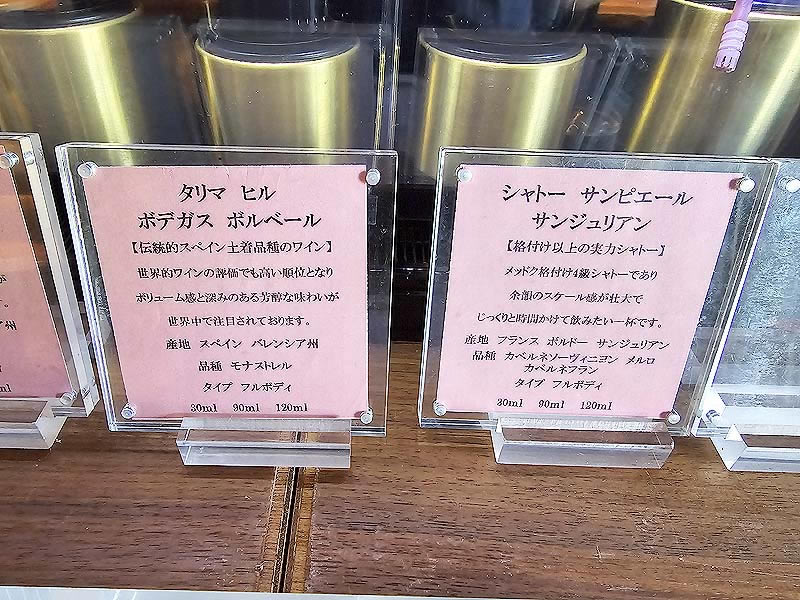 が
。
州
ml
タリマ ヒル
ボデガス ボルベール
【伝統的スペイン土着品種のワイン】
世界的ワインの評価でも高い順位となり
ボリューム感と深みのある芳醇な味わいが
世界中で注目されております。
産地 スペイン バレンシア州
品種 モナストレル
タイプ フルボディ
30ml 90ml 120ml
シャトー サンピエール
サンジュリアン
【格付け以上の実力シャトー】
メッドク格付け4級シャトーであり
余韻のスケール感が壮大で
じっくりと時間かけて飲みたい一杯です。
産地 フランス ボルドー サンジュリアン
品種 カベルネソーヴィニヨン メルロ
カベルネフラン
タイプ フルボディ
30ml 90ml 120ml